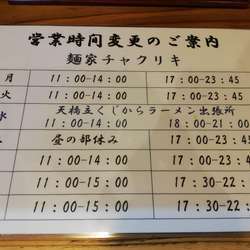 営業時間変更のご案内
麺家チャクリキ
月 11:00-14:00 17:00-23:45
火 11:00-14:00 17:00-23:45
水 天橋立くじからラーメン出張所
11:00-14:00 18:00-21:00
昼の部休み 17:00-23:45
11:00-14:00 17:30-22
11:00-15:00 17:30-22
11:00-15:00 17:30-22